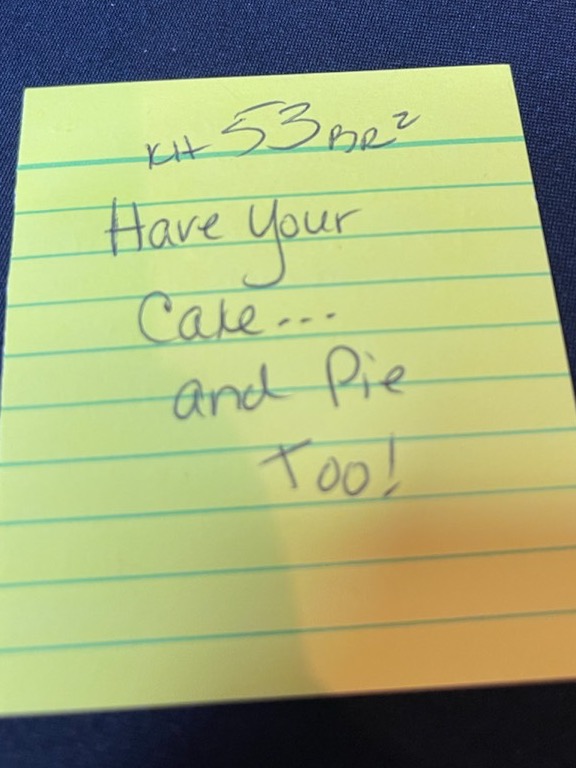 KH 53 BR²
Have your
Cake...
and Pie
Too!